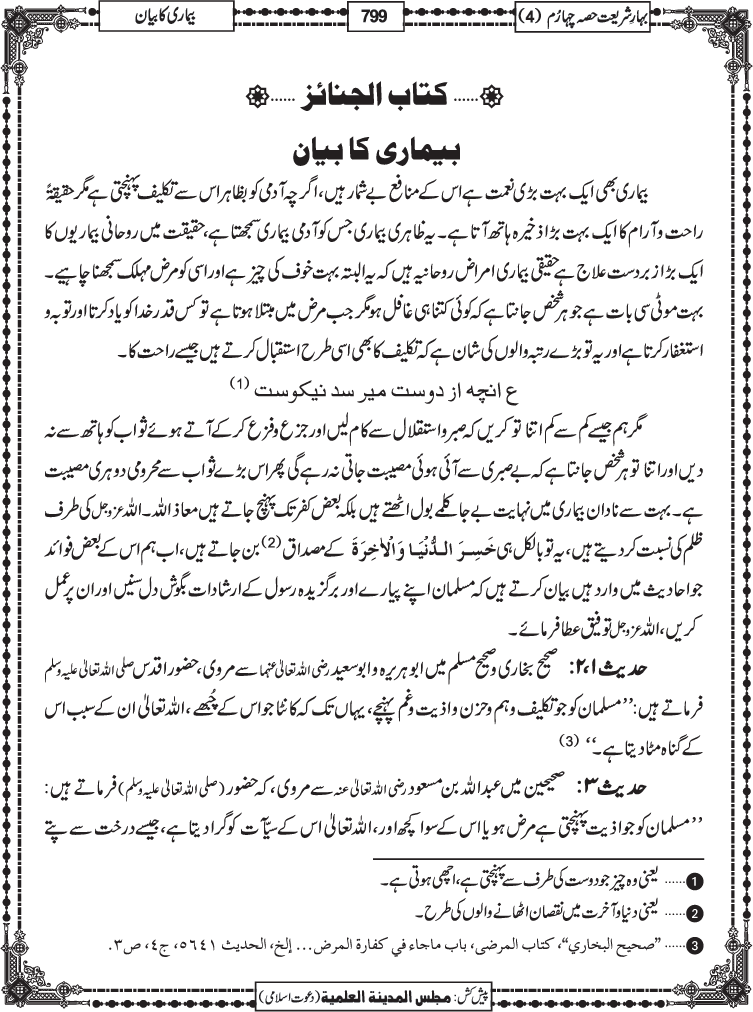 بہارِ شریعت حصہ چہارم (4)
799
بیماری کا بیان
کتاب الجنائز
بیماری کا بیان
بیماری بھی ایک بہت بڑی نعمت ہے اس کے منافع بے شمار ہیں، اگرچہ آدمی کو بظاہر اس سے تکلیف پہنچتی ہے مگر حقیقۃً
راحت و آرام کا ایک بہت بڑا ذخیرہ ہاتھ آتا ہے۔ یہ ظاہری بیماری جس کو آدمی بیماری سمجھتا ہے، حقیقت میں روحانی بیماریوں کا
ایک بڑا زبردست علاج ہے حقیقی بیماری امراض روحانیہ ہیں کہ یہ البتہ بہت خوف کی چیز ہے اور اسی کو مرض مہلک سمجھنا چاہیے۔
بہت موٹی سی بات ہے جو ہر شخص جانتا ہے کہ کوئی کتنا ہی غافل ہو مگر جب مرض میں مبتلا ہوتا ہے تو کس قدر خدا کو یاد کرتا اور توبہ و
استغفار کرتا ہے اور یہ تو بڑے رتبہ والوں کی شان ہے کہ تکلیف کا بھی اسی طرح استقبال کرتے ہیں جیسے راحت کا۔
ع انچہ از دوست میر سد نیکوست (1)
مگر ہم جیسے کم سے کم اتنا تو کریں کہ صبر و استقلال سے کام لیں اور جزع و فزع کرکے آتے ہوئے ثواب کو ہاتھ سے نہ
دیں اور اتنا تو ہر شخص جانتا ہے کہ بے صبری سے آئی ہوئی مصیبت جاتی نہ رہے گی پھر اس بڑے ثواب سے محرومی دوہری مصیبت
ہے۔ بہت سے نادان بیماری میں نہایت بے جا کلمے بول اٹھتے ہیں بلکہ بعض کفر تک پہنچ جاتے ہیں معاذ اللہ۔ اللہ عزوجل کی طرف
ظلم کی نسبت کر دیتے ہیں، یہ تو بالکل ہی خَسِرَ الدُّنْیَا وَالْاٰخِرَۃَ کے مصداق (2) بن جاتے ہیں، اب ہم اس کے بعض فوائد
جو احادیث میں وارد ہیں بیان کرتے ہیں کہ مسلمان اپنے پیارے اور برگزیدہ رسول کے ارشادات بگوش دل سنیں اور ان پر عمل
کریں، اللہ عزوجل توفیق عطا فرمائے۔
حدیث ۱،۲: صحیح بخاری و صحیح مسلم میں ابوہریرہ و ابوسعید رضی اللہ تعالیٰ عنہما سے مروی، حضور اقدس صلی اللہ تعالیٰ علیہ وسلم
فرماتے ہیں: ’’مسلمان کو جو تکلیف و ہم و حزن و اذیت و غم پہنچے، یہاں تک کہ کانٹا جو اس کے چُبھے، اللہ تعالیٰ ان کے سبب اس
کے گناہ مٹا دیتا ہے۔‘‘ (3)
حدیث ۳: صحیحین میں عبداللہ بن مسعود رضی اللہ تعالیٰ عنہ سے مروی، کہ حضور (صلی اللہ تعالیٰ علیہ وسلم) فرماتے ہیں:
’’مسلمان کو جو اذیت پہنچتی ہے مرض ہو یا اس کے سوا کچھ اور، اللہ تعالیٰ اس کے سیّآت کو گرا دیتا ہے، جیسے درخت سے پتے
1 ...... یعنی وہ چیز جو دوست کی طرف سے پہنچتی ہے، اچھی ہوتی ہے۔
2 ...... یعنی دنیا و آخرت میں نقصان اٹھانے والوں کی طرح۔
3 ...... ’’صحیح البخاري‘‘، کتاب المرضی، باب ماجاء في کفارة المرض... إلخ، الحدیث ٥٦٤١، ج٤، ص٣.
پیش کش: مجلس المدینة العلمیة (دعوت اسلامی)